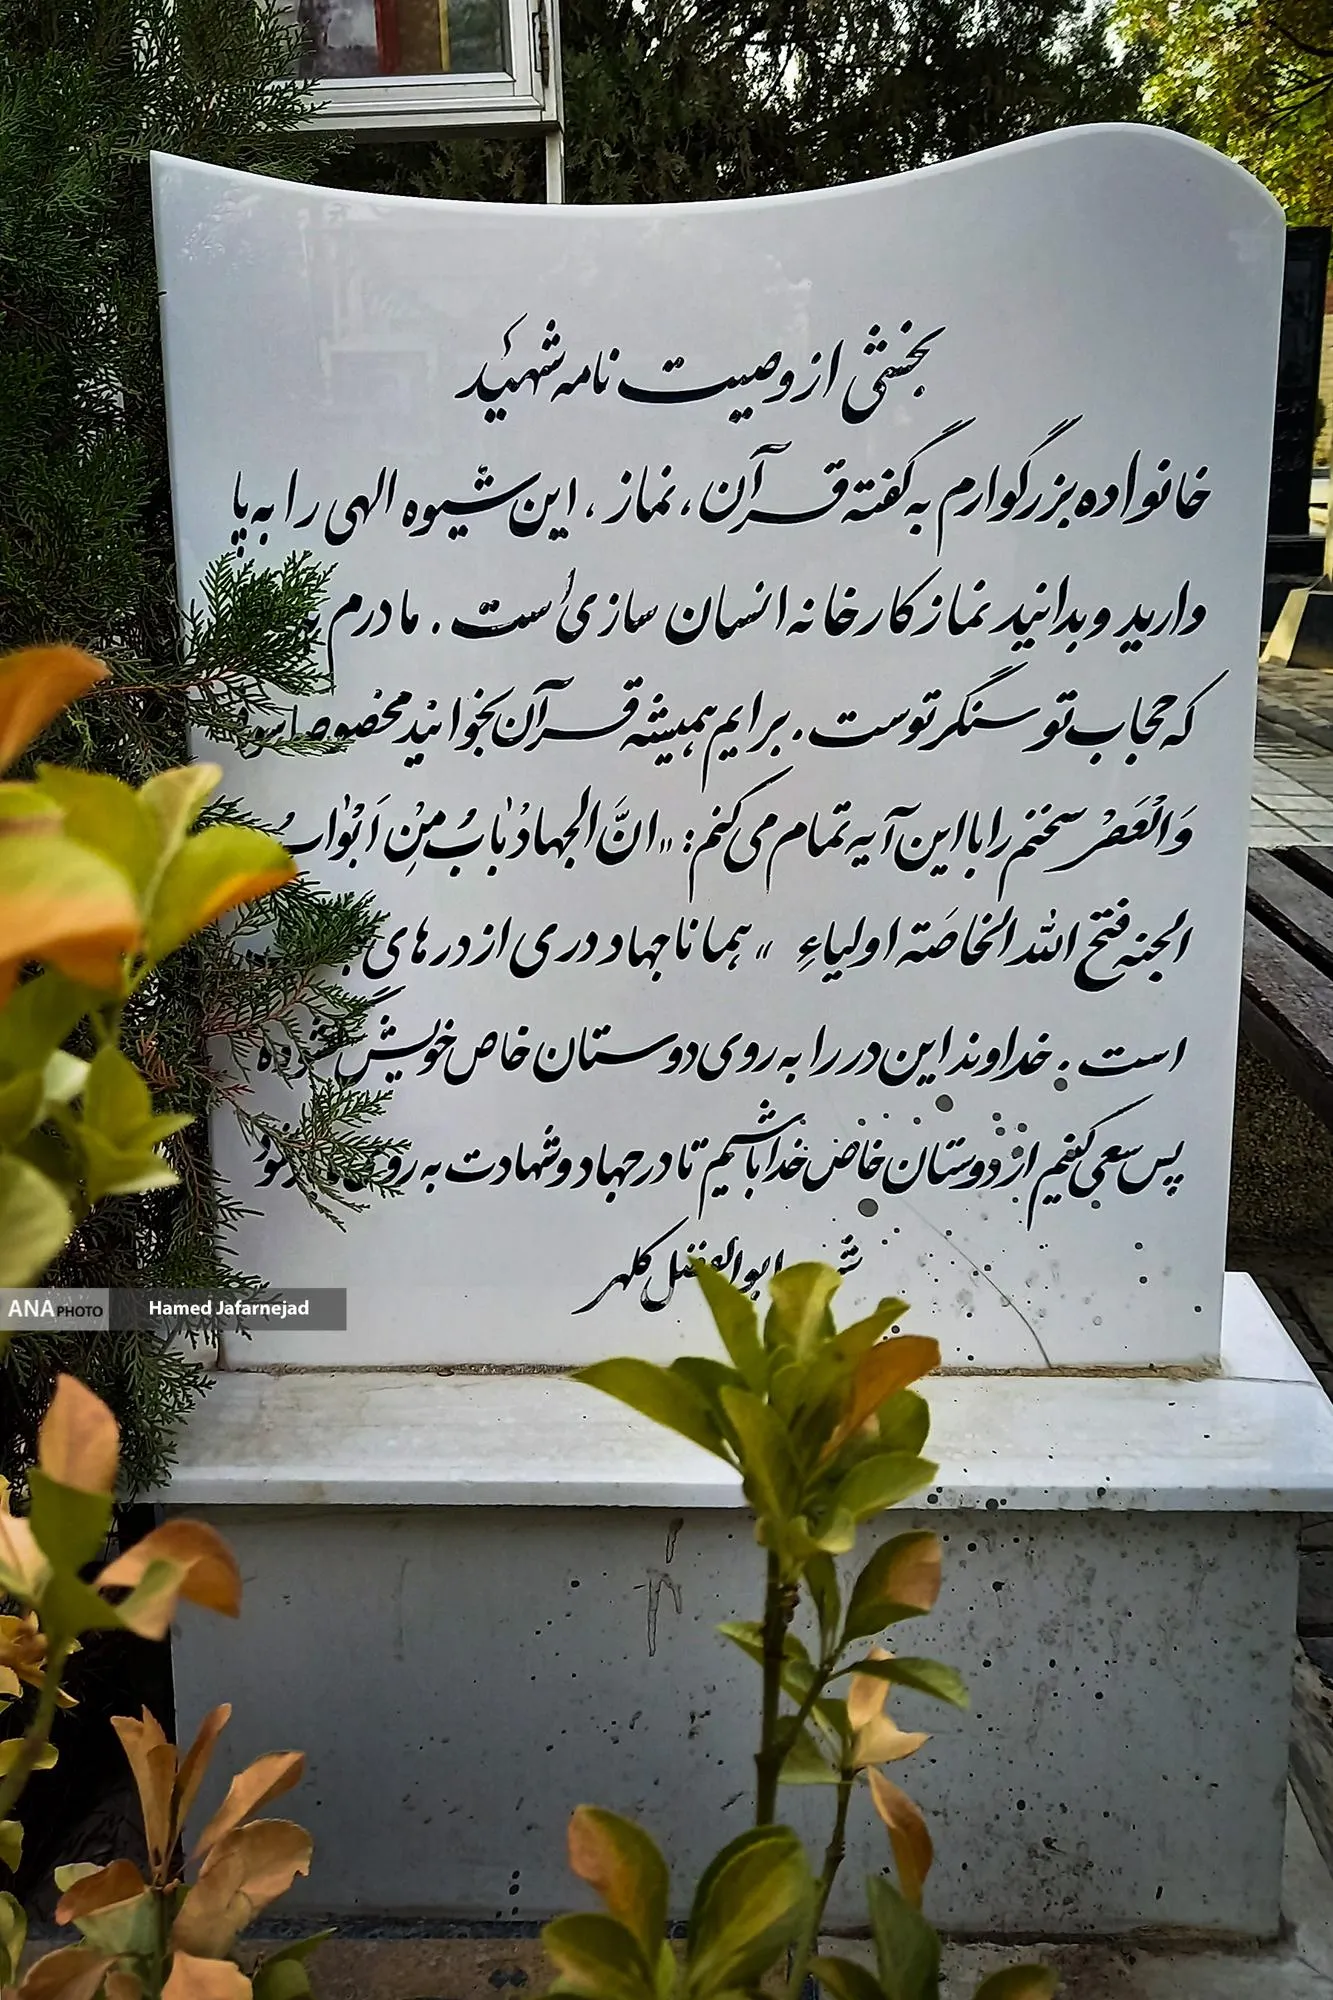 بخشی از وصیت نامه شهید
خانواده بزرگوارم به گفته قرآن، نماز، این شیوه الهی را به پا
دارید و بدانید نماز کارخانه انسان سازی است. مادرم
که حجاب تو سنگر توست. برایم همیشه قرآن بخوانید مخصوصا
وَالْعَصْر سخنم را با این آیه تمام می کنم: «انَّ الجهادْ بابُ مِنْ اَبْوابُ
الجنه فتح الله الخاصَته اولیاءِ» همانا جهاد دری از درهای
است. خداوند این در را به روی دوستان خاص خویش گشوده
پس سعی کنیم از دوستان خاص خدا باشیم تا در جهاد و شهادت به روی
ابوالفضل کلهر
ANA PHOTO Hamed Jafarnejad